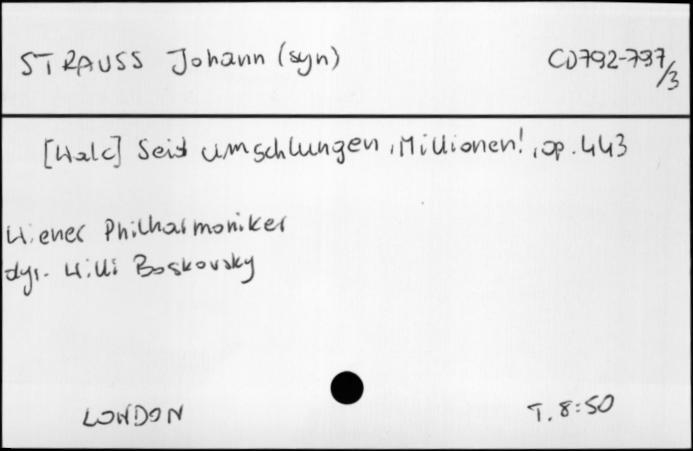 STRAUSS Johann (syn)
CD792-797/3
[Walc] Seid umschlungen, Millionen!, op. 443
Wiener Philharmoniker
dyr. Willi Boskovsky
LONDON
T. 8:50